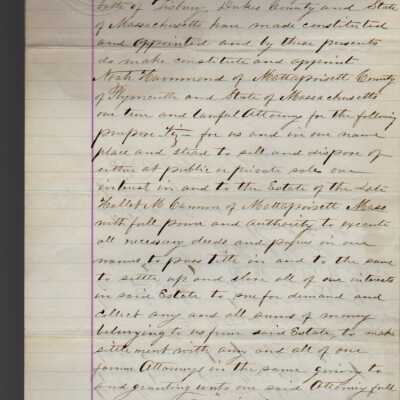 both of Tisbury Dukes County and State
of Massachusetts have made constituted
and appointed and by these presents
do make constitute and appoint
Noah Hammond of Mattapoisett County
of Plymouth and State of Massachusetts
our true and lawful Attorney for the following
purpose Viz— for us and in our name
place and stead to sell and dispose of
either at public or private sale our
interest in and to the Estate of the Late
of Mattapoisett Mass
with full power and authority to execute
all necessary deeds and papers in our
name to pass title in and to the same
to settle up and close all of our interests
in said Estate to sue for demand and
collect any and all sums of money
belonging to us from said Estate, to make
settlement with any and all of our
former Attorneys in the same giving to
and granting unto our said Attorney full